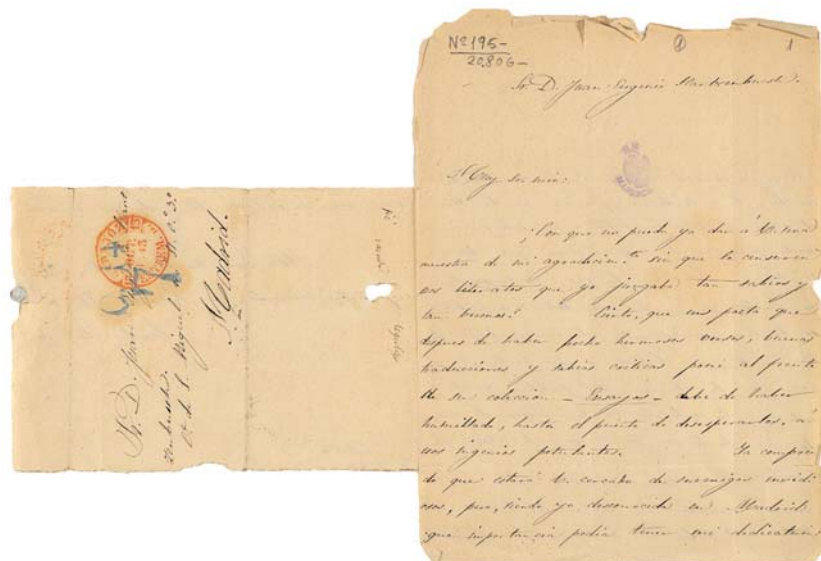 Nº 195-
20806-
1
1
Sr. D. Juan Eugenio Hartzenbusch.
Muy Sr. mio:
¿Con que no puedo ya dar á V. una
muestra de mi agradecim.to sin que lo censuren
esos literatos que yo juzgaba tan sabios y
tan buenos? Cierto, que un poeta que
despues de haber hecho hermosos versos, buenas
traducciones y sabias criticas pone al frente
de su coleccion — Ensayos — debe de haber
humillado, hasta el punto de desesperarlos, á
esos ingenios petulantes. Ya compren
do que estará V. cercado de enemigos envidi
osos, pero, siendo yo desconocida en Madrid
que importancia podia tener mi dedicatoria
Sr. D. Juan
zenbusch.
C.e de S. Miguel nº 3º
Madrid.